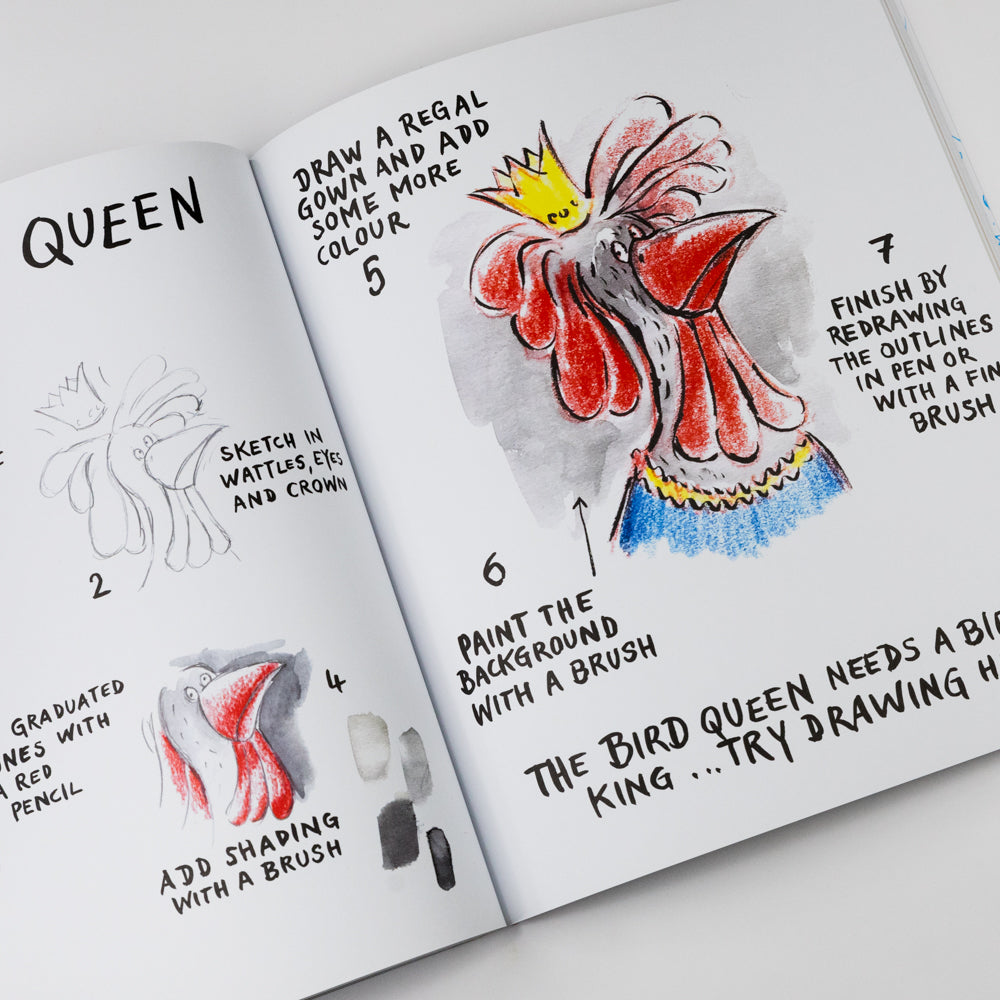 QUEEN
SKETCH IN
WATTLES, EYES
AND CROWN
2
GRADUATED
WITH
A RED
PENCIL
4
ADD SHADING
WITH A BRUSH
DRAW A REGAL
GOWN AND ADD
SOME MORE
COLOUR
5
6
PAINT THE
BACKGROUND
WITH A BRUSH
7
FINISH BY
REDRAWING
THE OUTLINES
IN PEN OR
WITH A FIN
BRUSH
THE BIRD QUEEN NEEDS A BIR
KING ... TRY DRAWING H